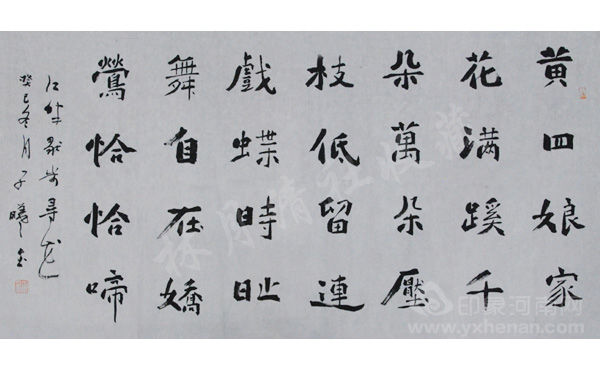 黄四娘家
花满蹊千
朵萬朵壓
枝低留連
戲蝶時時
舞自在嬌
鶯恰恰啼
江畔独步尋花
癸巳冬月子曦
印象河南网
www.yxhenan.com